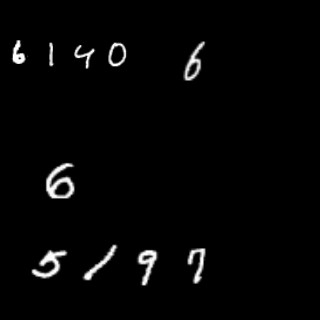 6 1 4 0 6
6
5 1 9 7